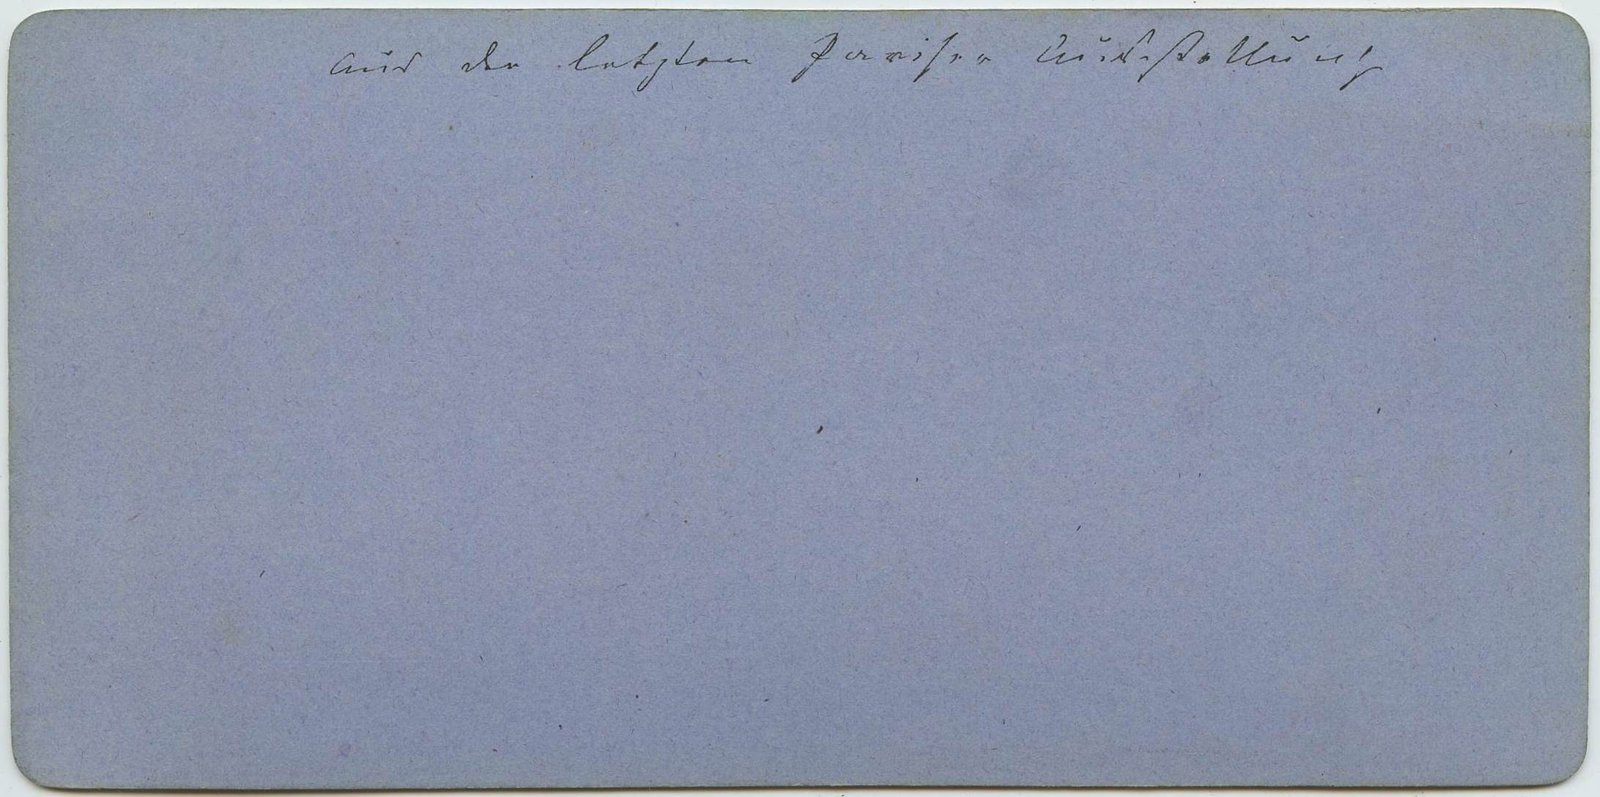 aus der letzten Pariser Ausstellung